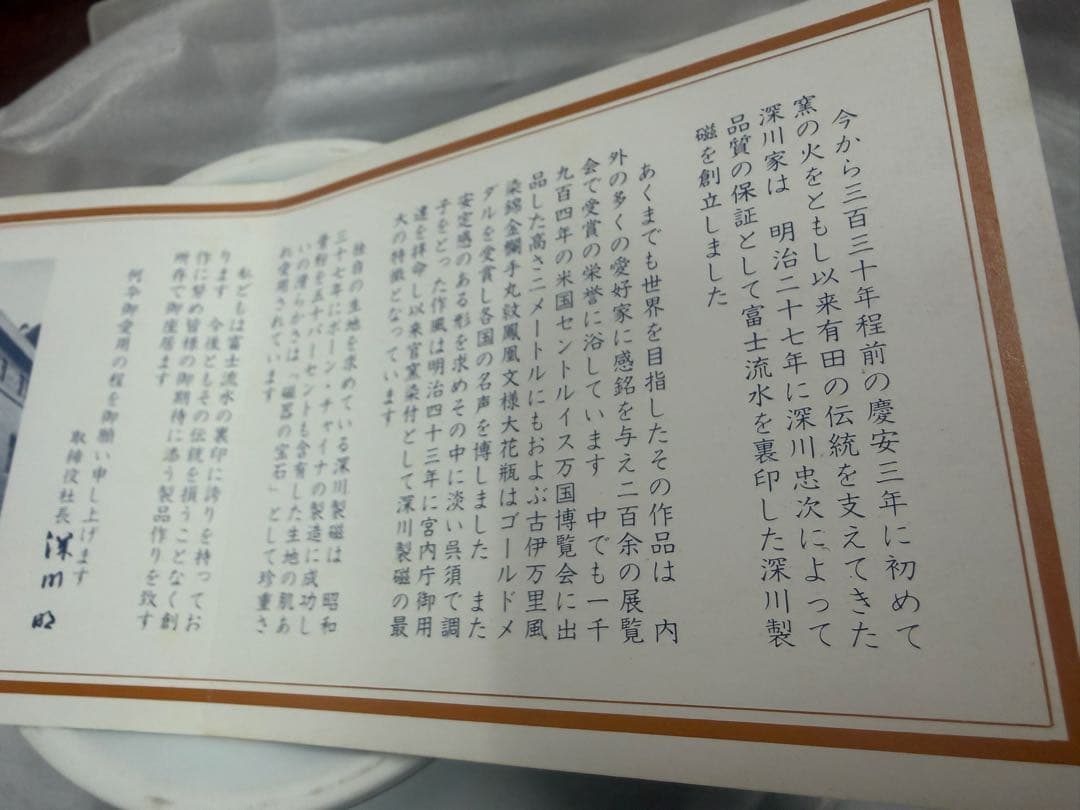 今から三百三十年程前の慶安三年に初めて
窯の火をともし以来有田の伝統を支えてきた
深川家は　明治二十七年に深川忠次によって
品質の保証として富士流水を裏印した深川製
磁を創立しました
あくまでも世界を目指したその作品は　内
外の多くの愛好家に感銘を与え二百余の展覧
会で受賞の栄誉に浴しています　中でも一千
九百四年の米国セントルイス万国博覧会に出
品した高さ二メートルにもおよぶ古伊万里風
染錦金欄手丸紋鳳凰文様大花瓶はゴールドメ
ダルを受賞し各国の名声を博しました　また
安定感のある形を求めその中に淡い呉須で調
子をとった作風は明治四十三年に宮内庁御用
達を拝命し以来官窯染付として深川製磁の最
大の特徴となっています
独自の生地を求めている深川製磁は　昭和
三十七年にボーン・チャイナの製造に成功し
骨粉を五十パーセントも含有した生地の肌あ
いの滑らかさは「磁器の宝石」として珍重さ
れ愛用されています
私どもは富士流水の裏印に誇りを持ってお
ります　今後ともその伝統を損うことなく創
作に努め皆様の御期待に添う製品作りを致す
所存で御座居ます
何卒御愛用の程を御願い申し上げます
取締役社長　深川明